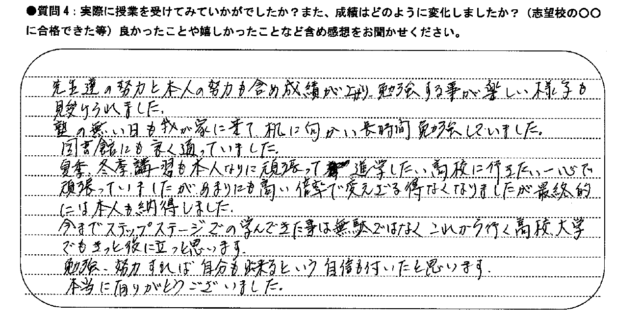 ●質問4：実際に授業を受けてみていかがでしたか？また、成績はどのように変化しましたか？（志望校の〇〇
に合格できた等）良かったことや嬉しかったことなど含め感想をお聞かせください。
先生達の努力と本人の努力も含め成績が上がり、勉強する事が楽しい様子も
見受けられました。
塾の無い日も我が家に来て机に向かい長時間勉強していました。
図書館にも良く通っていました。
夏季、冬季講習も本人なりに頑張って進学したい高校に行きたい一心で
頑張っていましたがあまりにも高い倍率で変えざる得なくなりましたが最終的
には本人も納得しました。
今までステップステージでの学んできた事は無駄ではなくこれから行く高校、大学
でもきっと役に立つと思います。
勉強、努力すれば自分も出来るという自信も付いたと思います。
本当に有りがとうございました。